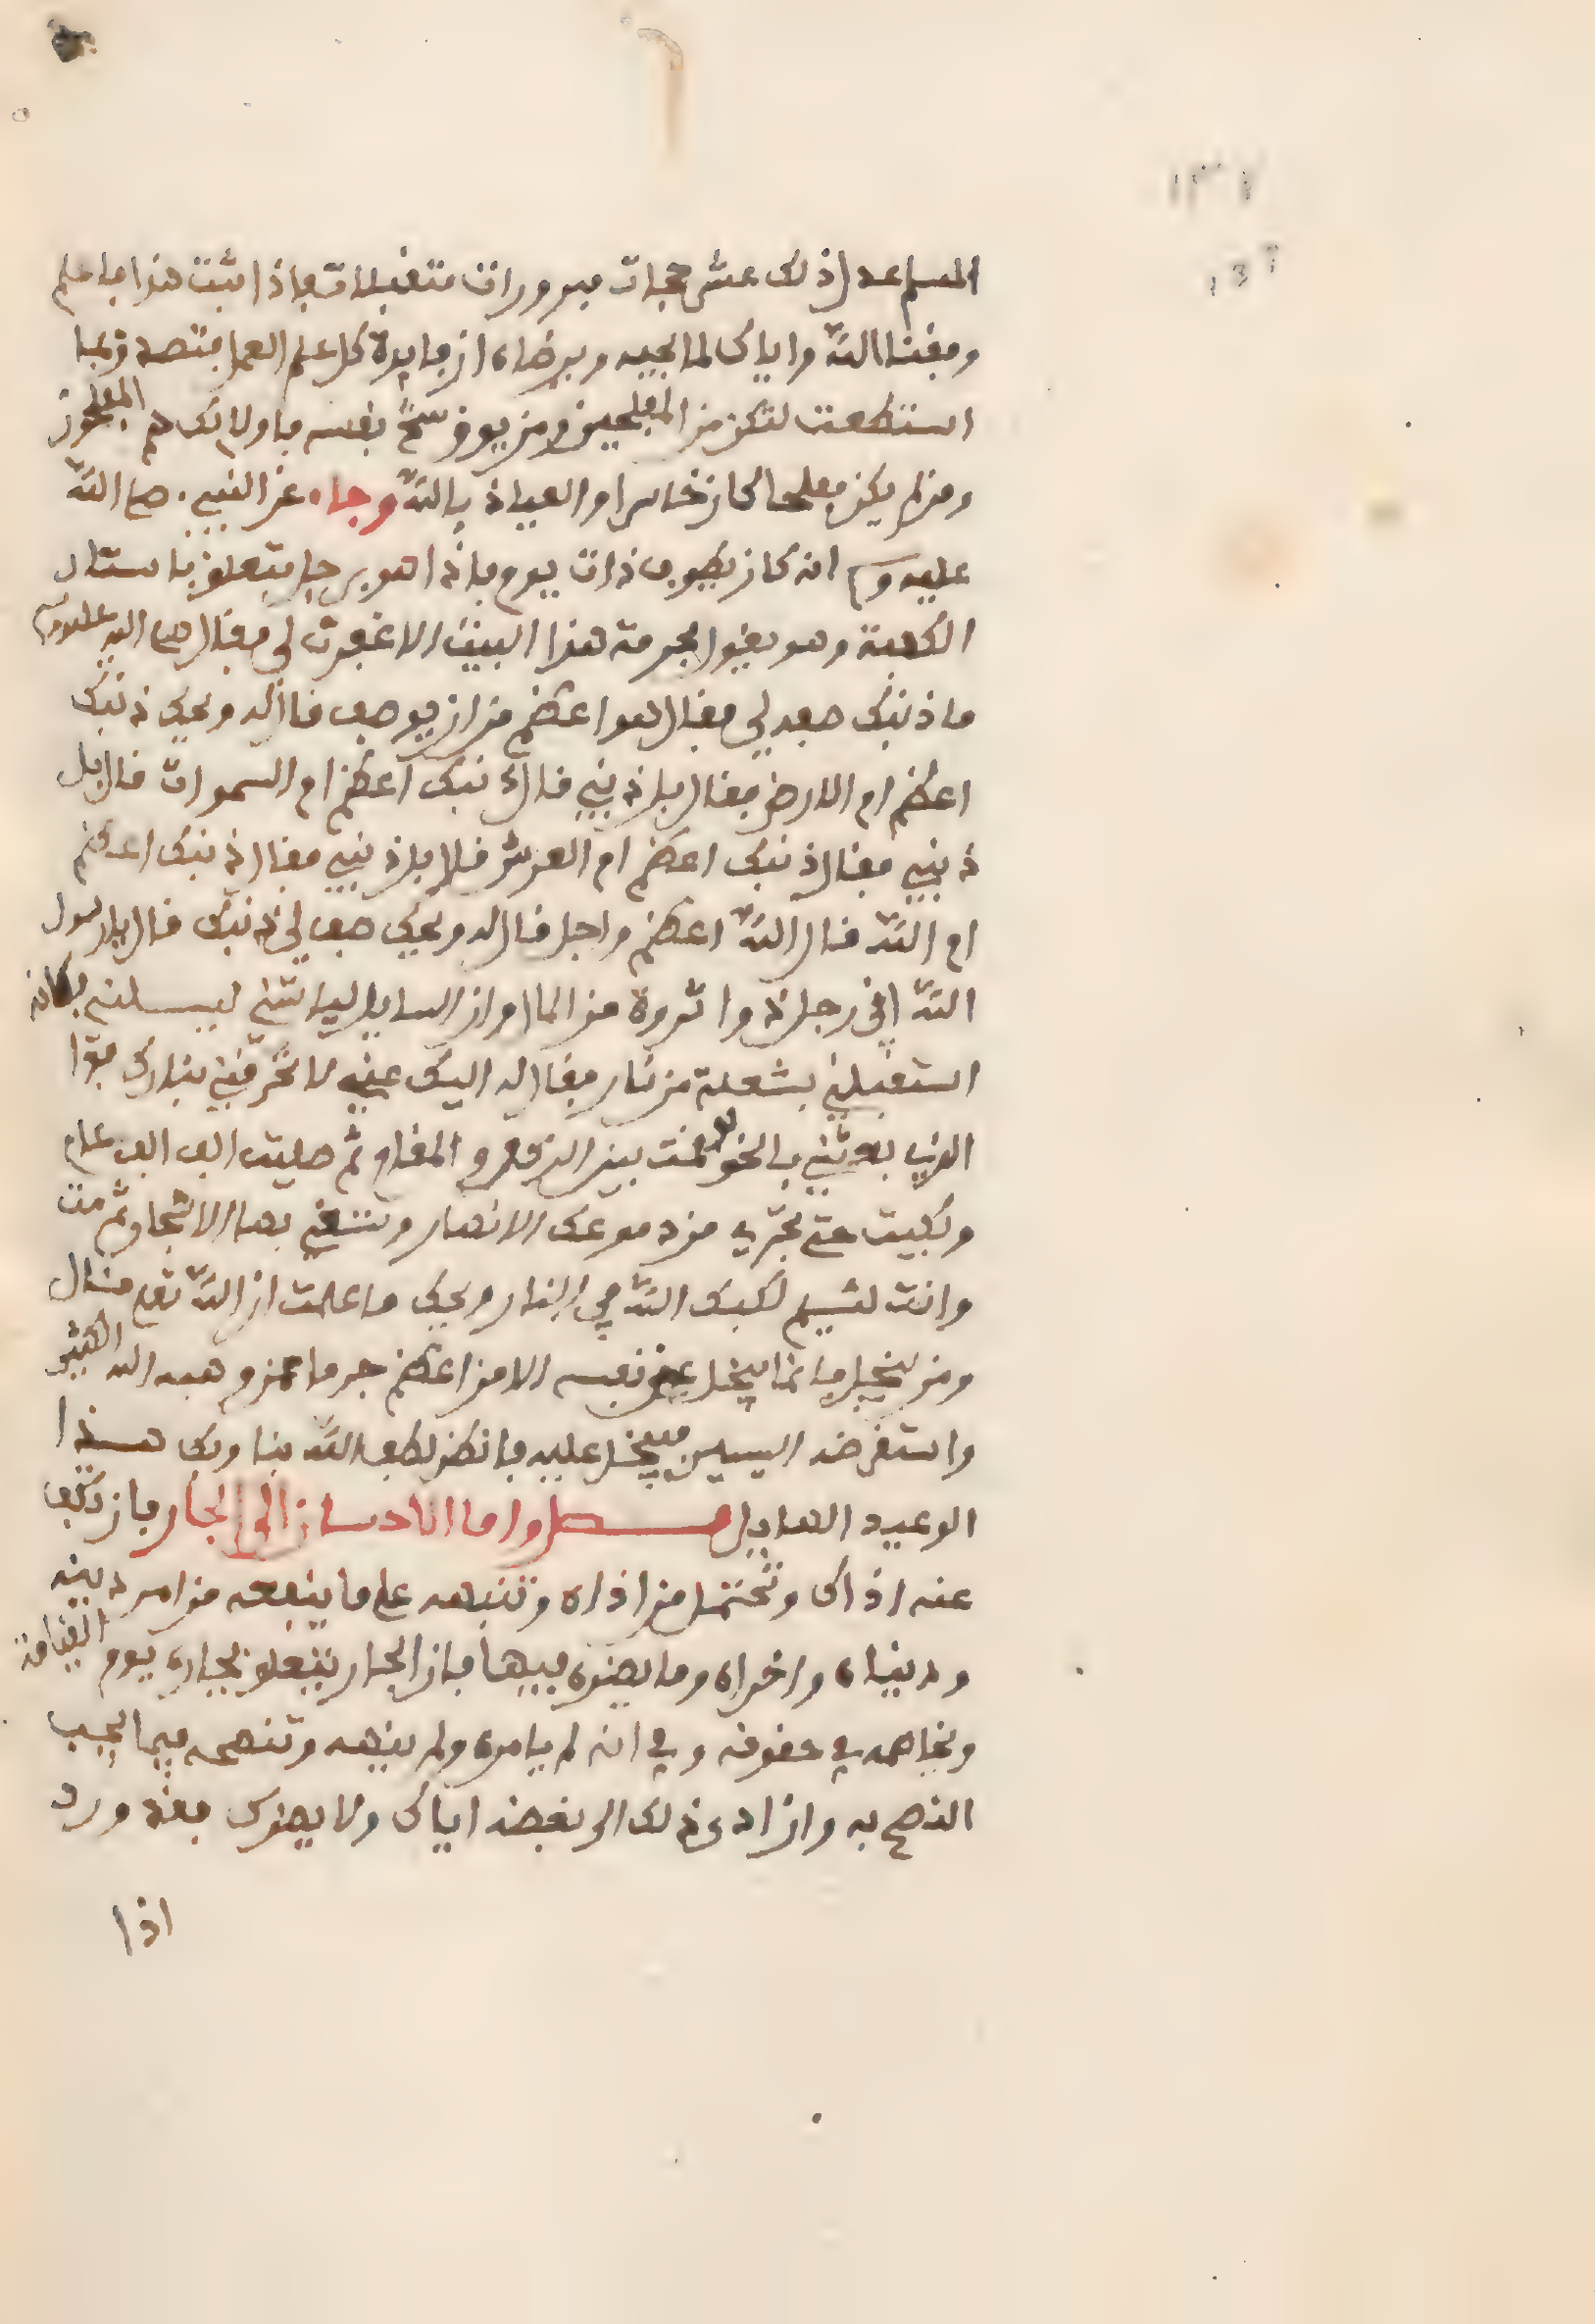 المسلم عدل ذلك عشر حجات مبرورات متقبلات فاذا ثبت هذا فاعلم
وفقنا الله واياك لما يحبه ويرضاه ان فايدة كل علم العمل فتصدق بما
استطعت لتكن من المفلحين ومن يوق شح نفسه فاولائك هم المفلحون
ومن لم يكن مفلحا كان خاسرا والعياذ بالله وجاء عن النبيء صلى الله
عليه وسلم انه كان يطوف ذات يوم فاذا هو برجل يتعلق باستار
الكعبة وهو يقول بحرمة هذا البيت الا غفرت لي فقال صلى الله عليه وسلم
ما ذنبك صفه لي فقال هو اعظم من ان يوصف قال له ويحك ذنبك
اعظم ام الارض فقال بل ذنبي قال ذنبك اعظم ام السموات قال بل
ذنبي فقال ذنبك اعظم ام العرش قال بل ذنبي فقال ذنبك اعظم
ام الله قال الله اعظم واجل قال له ويحك صف لي ذنبك قال يا رسول
الله اني رجل ذو اثروة من المال وان السايل لياتيني ليسلني فكانه
استقبلني بشعلة من نار فقال له اليك عني لا تحرقني بنارك فوا
الذي بعثني بالحق لو قمت بين الركن والمقام ثم صليت الف الف عام
وبكيت حتى تجري من دموعك الانهار وتسقي بها الاشجار ثم مت
وانت لئيم لكبك الله في النار ويحك ما علمت ان الله تعلى قال
ومن يبخل فانما يبخل عن نفسه الا من اعظم جرما ممن وهبه الله الكثير
واستقرضه اليسير فيبخل عليه فانظر لطف الله بنا وبك هذا
الوعيد الهايل فصل واما الاحسان الى الجار فان تكف
عنه اذاك وتحتمل من اذاه وتنبهه على ما ينفعه من امر دينه
ودنياه واخراه وما يضره فيها فان الجار يتعلق بجاره يوم القيامة
ويخاصمه في حقوقه وفي انه لم يامره ولم ينهه وتنصحه فيما يجب
النصح به وان ادى ذلك الى بغضه اياك ولا يضرك فقد ورد
اذا